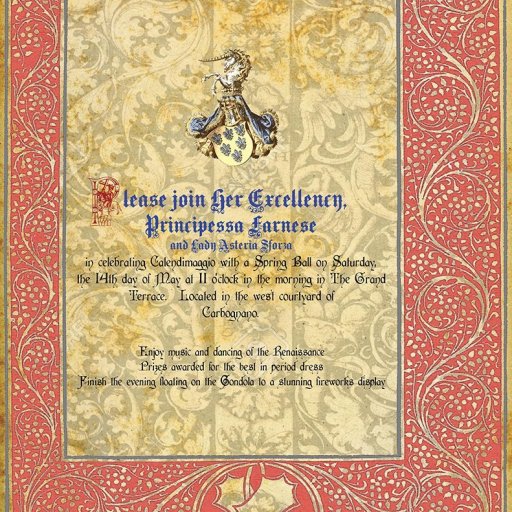 Please join Her Excellency,
Principessa Farnese
and Lady Asteria Sforza
in celebrating Calendimaggio with a Spring Ball on Saturday,
the 14th day of May at 11 o'clock in the morning in The Grand
Terrace. Located in the west courtyard of
Carbognano.
Enjoy music and dancing of the Renaissance
Prizes awarded for the best in period dress
Finish the evening floating on the Gondola to a stunning fireworks display